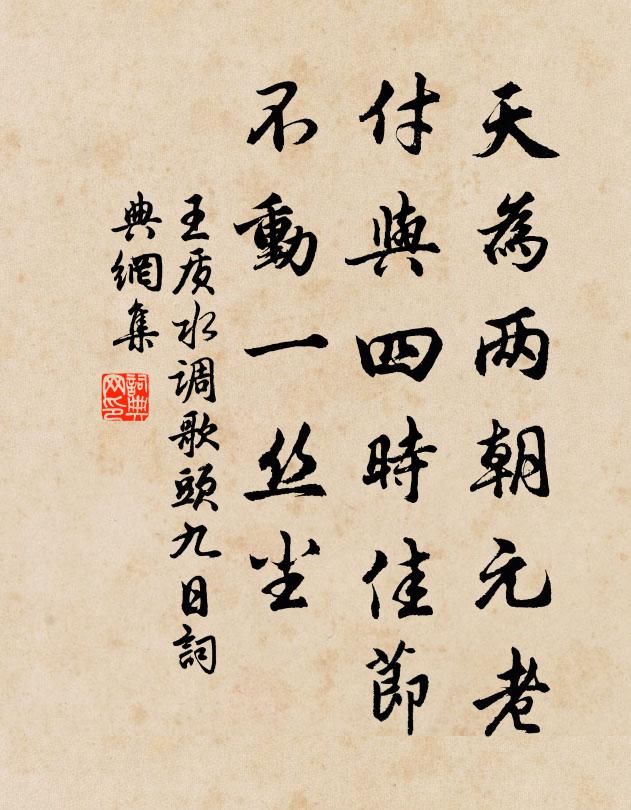 天為两朝元老
付與四時佳節
不動一丝尘
王质水调歌頭九日詞
典網集
詞典
网印